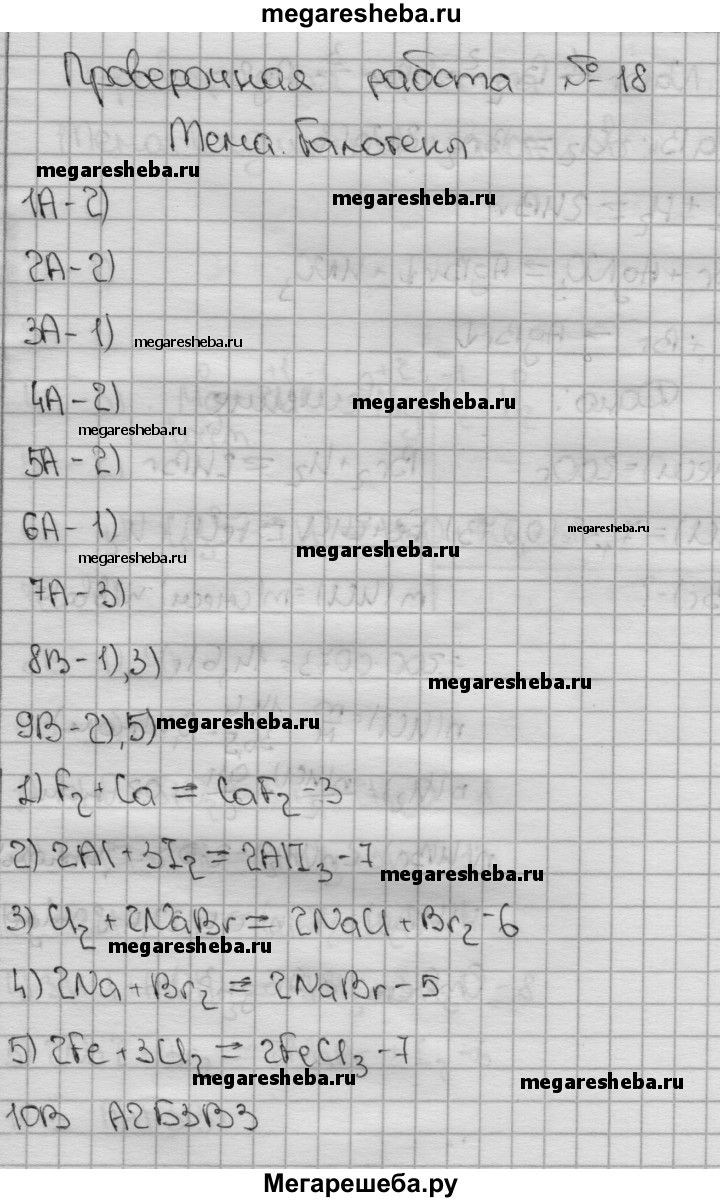 megaresheba.ru
Проверочная работа № 18
Тема. Галогены
megaresheba.ru
megaresheba.ru
1А - 2)
2А - 2)
3А - 1) megaresheba.ru
4А - 2) megaresheba.ru
megaresheba.ru
5А - 2)
6А - 1) megaresheba.ru
megaresheba.ru megaresheba.ru
7А - 3)
8В - 1), 3)
megaresheba.ru
9В - 2), 5) megaresheba.ru
1) F₂ + Ca = CaF₂ - 3
2) 2Al + 3I₂ = 2AlI₃ - 7
megaresheba.ru
3) Cl₂ + 2NaBr = 2NaCl + Br₂ - 6
megaresheba.ru
4) 2Na + Br₂ = 2NaBr - 5
5) 2Fe + 3Cl₂ = 2FeCl₃ - 7
megaresheba.ru megaresheba.ru
10В А2Б3В3
Мегарешеба.ру